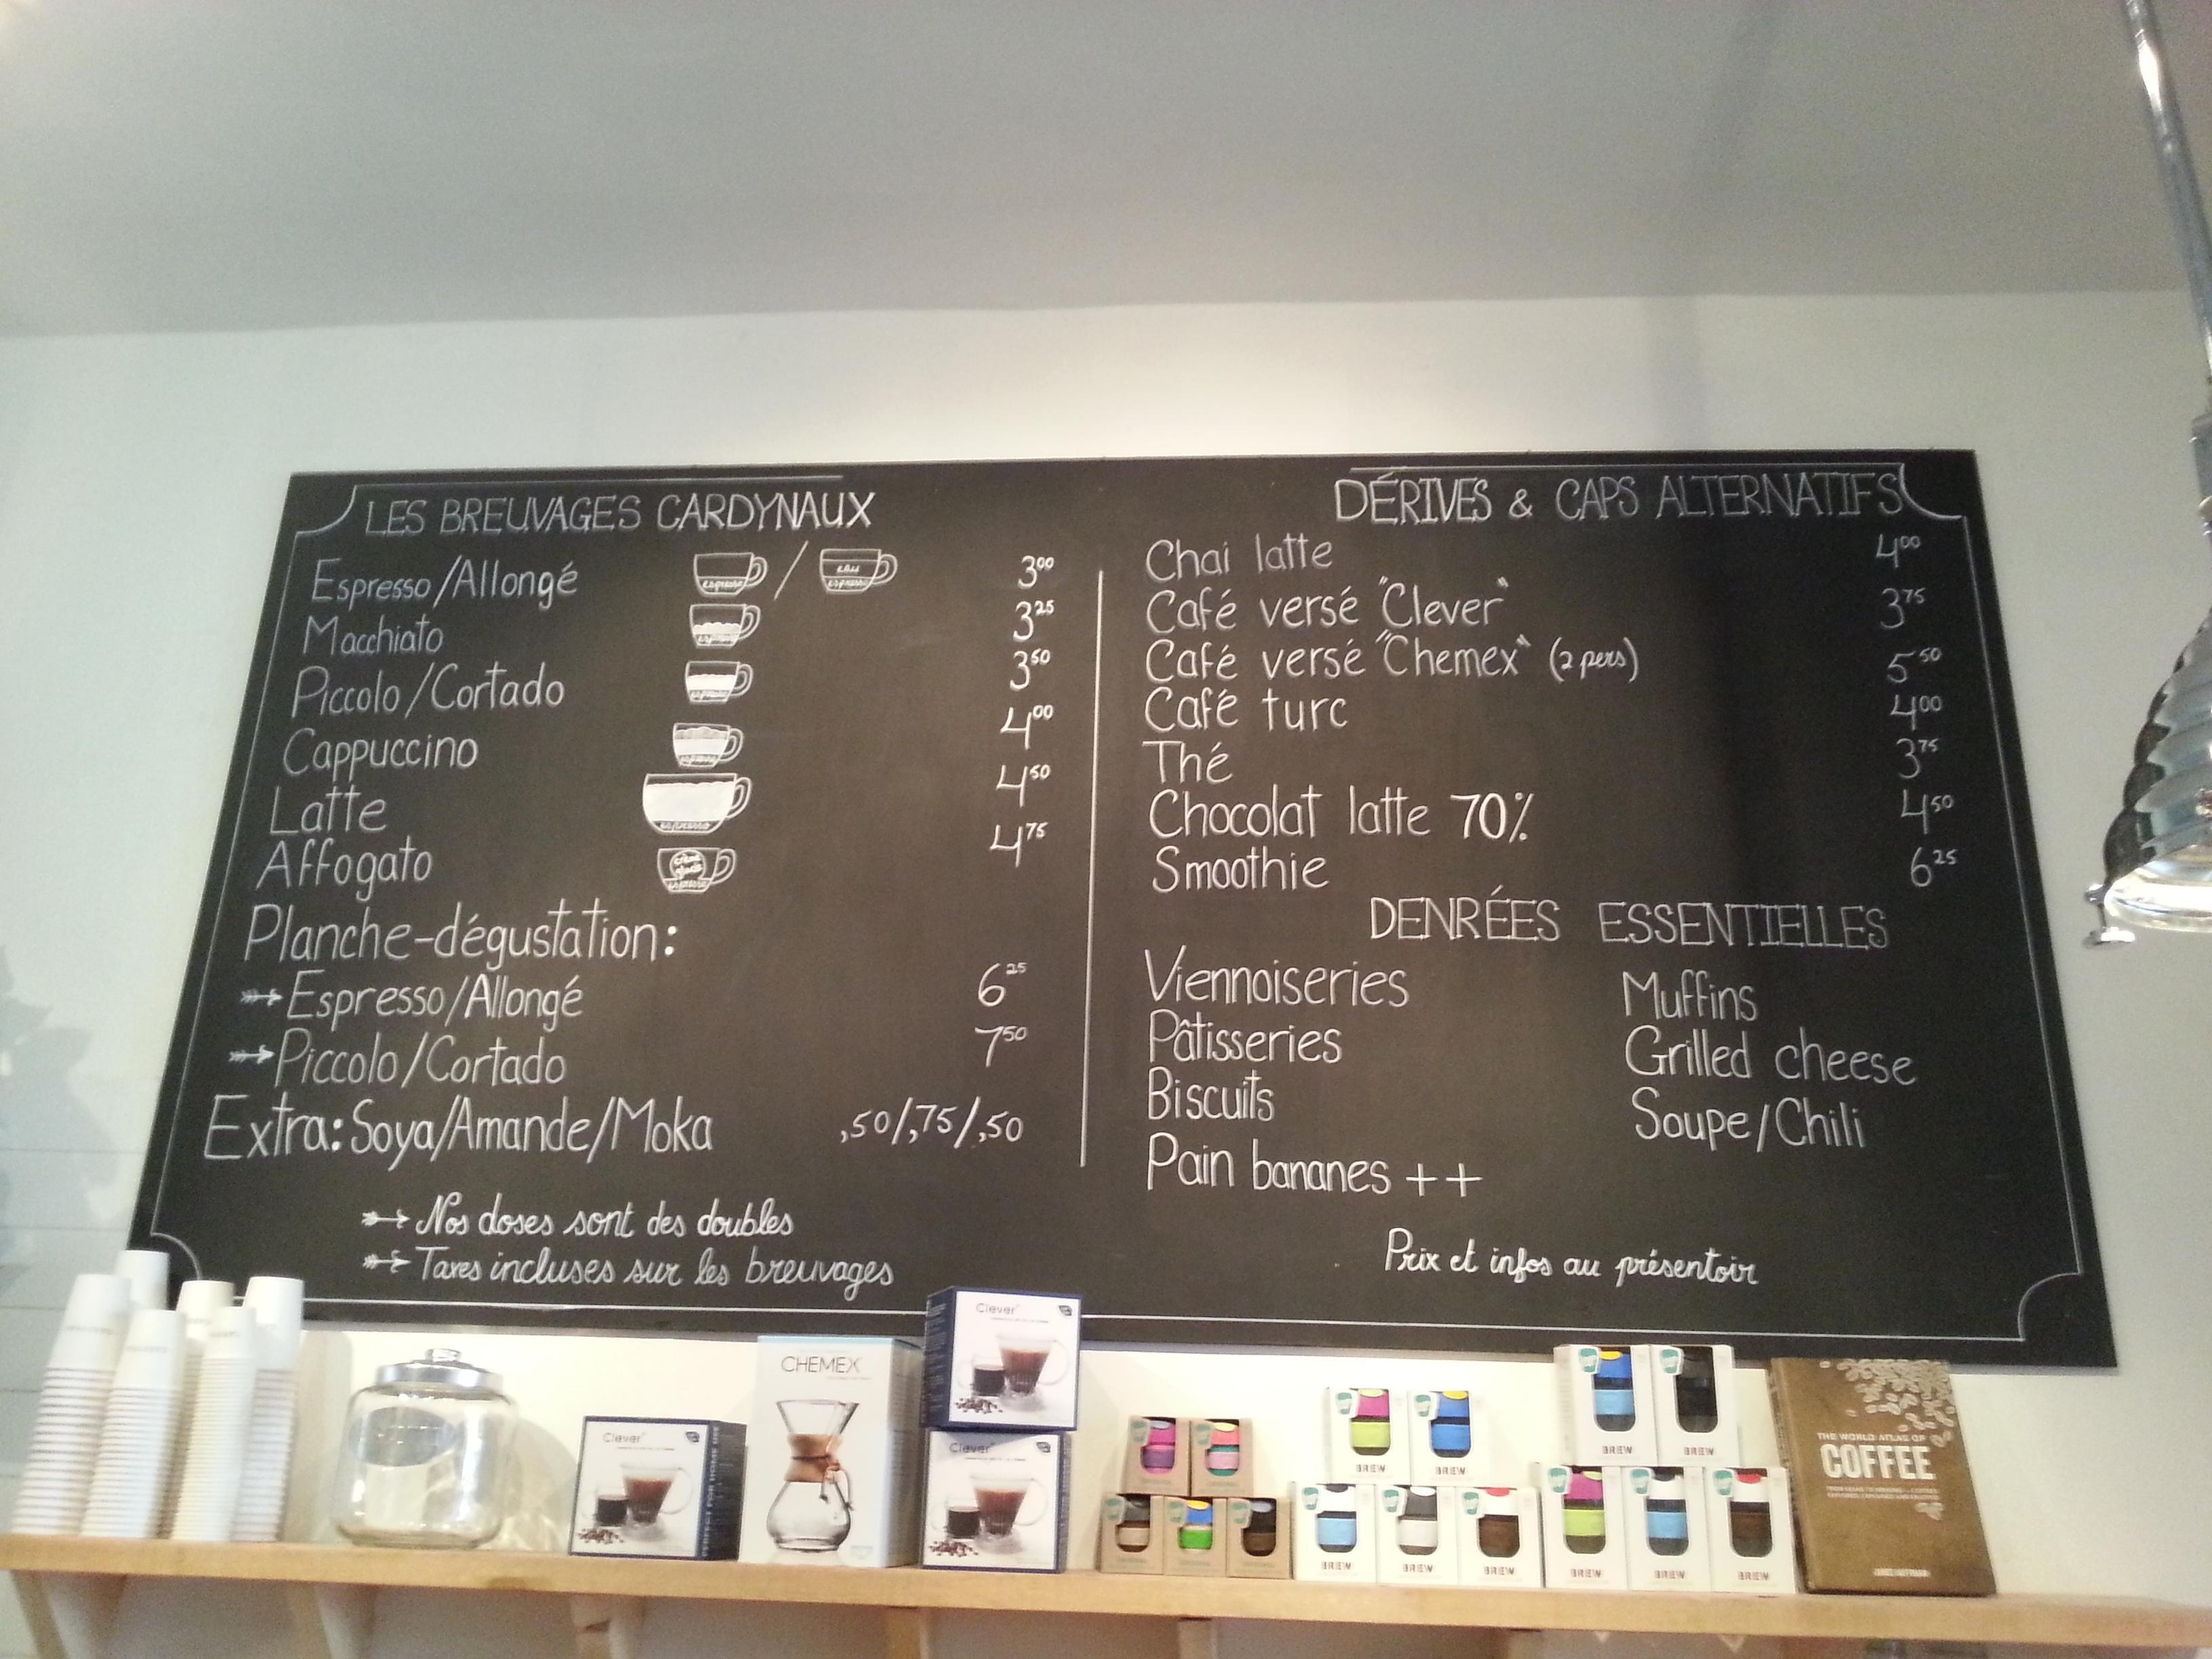 LES BREUVAGES CARDYNAUX
Espresso/Allongé 3.00
espresso / eau espresso
Macchiato 3.25
Piccolo/Cortado 3.50
Cappuccino 4.00
Latte 4.50
espresso
Affogato 4.75
crème glacée
espresso
Planche-dégustation:
Espresso/Allongé 6.25
Piccolo/Cortado 7.50
Extra: Soya/Amande/Moka ,50/,75/,50
Nos doses sont des doubles
Taxes incluses sur les breuvages
DÉRIVES & CAPS ALTERNATIFS
Chai latte 4.00
Café versé "Clever" 3.75
Café versé "Chemex" (2 pers) 5.50
Café turc 4.00
Thé 3.75
Chocolat latte 70% 4.50
Smoothie 6.25
DENRÉES ESSENTIELLES
Viennoiseries Muffins
Pâtisseries Grilled cheese
Biscuits Soupe/Chili
Pain bananes ++
Prix et infos au présentoir
Clever
PERFECT FOR HOME USE
CHEMEX
Clever
Clever
BREW
BREW
BREW
BREW
BREW
BREW
BREW
BREW
BREW
BREW
THE WORLD ATLAS OF
COFFEE
JAMES HOFFMANN